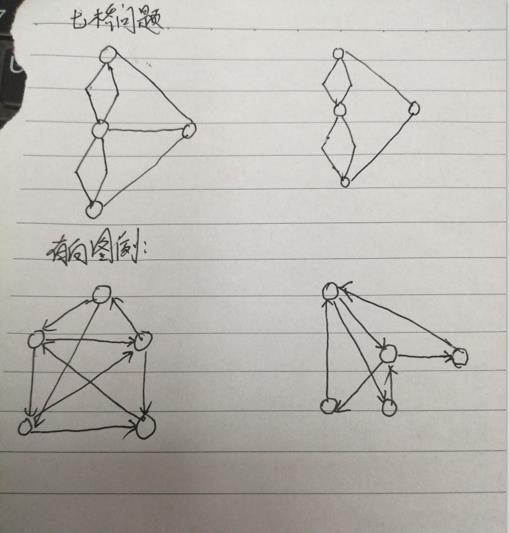 七桥问题
有向图例: